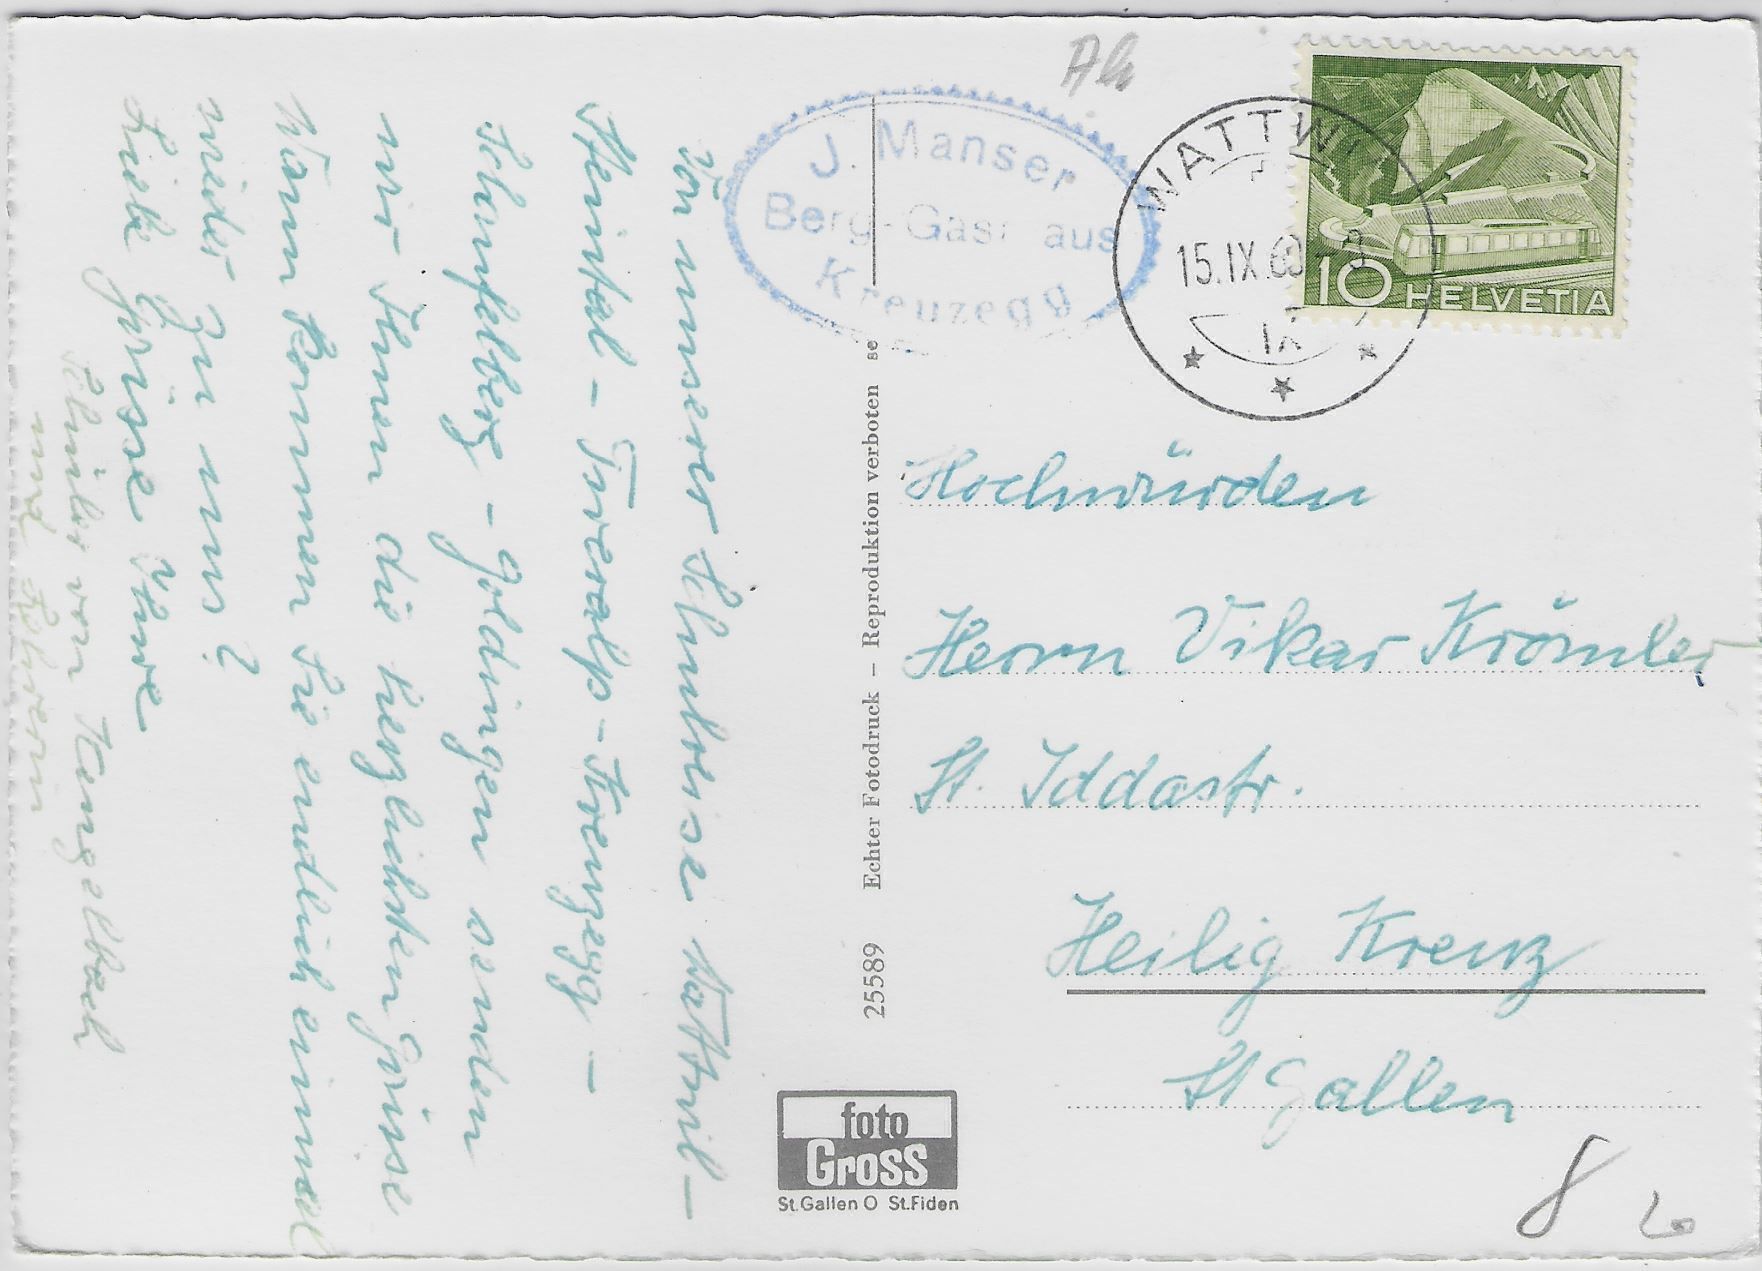 Von unserer Schulreise Wattwil –
Steintal – Tweralp – Kreuzegg –
Schnebelberg – Goldingen senden
wir Ihnen die herzlichsten Grüsse
Wann kommen Sie endlich einmal
wieder zu uns?
Liebe Grüsse Ihre
Schüler von Hengelbach
und Lehrerin
J. Manser
Berg-Gast aus
Kreuzegg
WATTW
15.IX.
IX
10 HELVETIA
se
Echter Fotodruck – Reproduktion verboten
25589
Hochwürden
Herrn Vikar Krömler
St. Iddastr.
Heilig Kreuz
St Gallen
foto
Gross
St.Gallen O St.Fiden
8